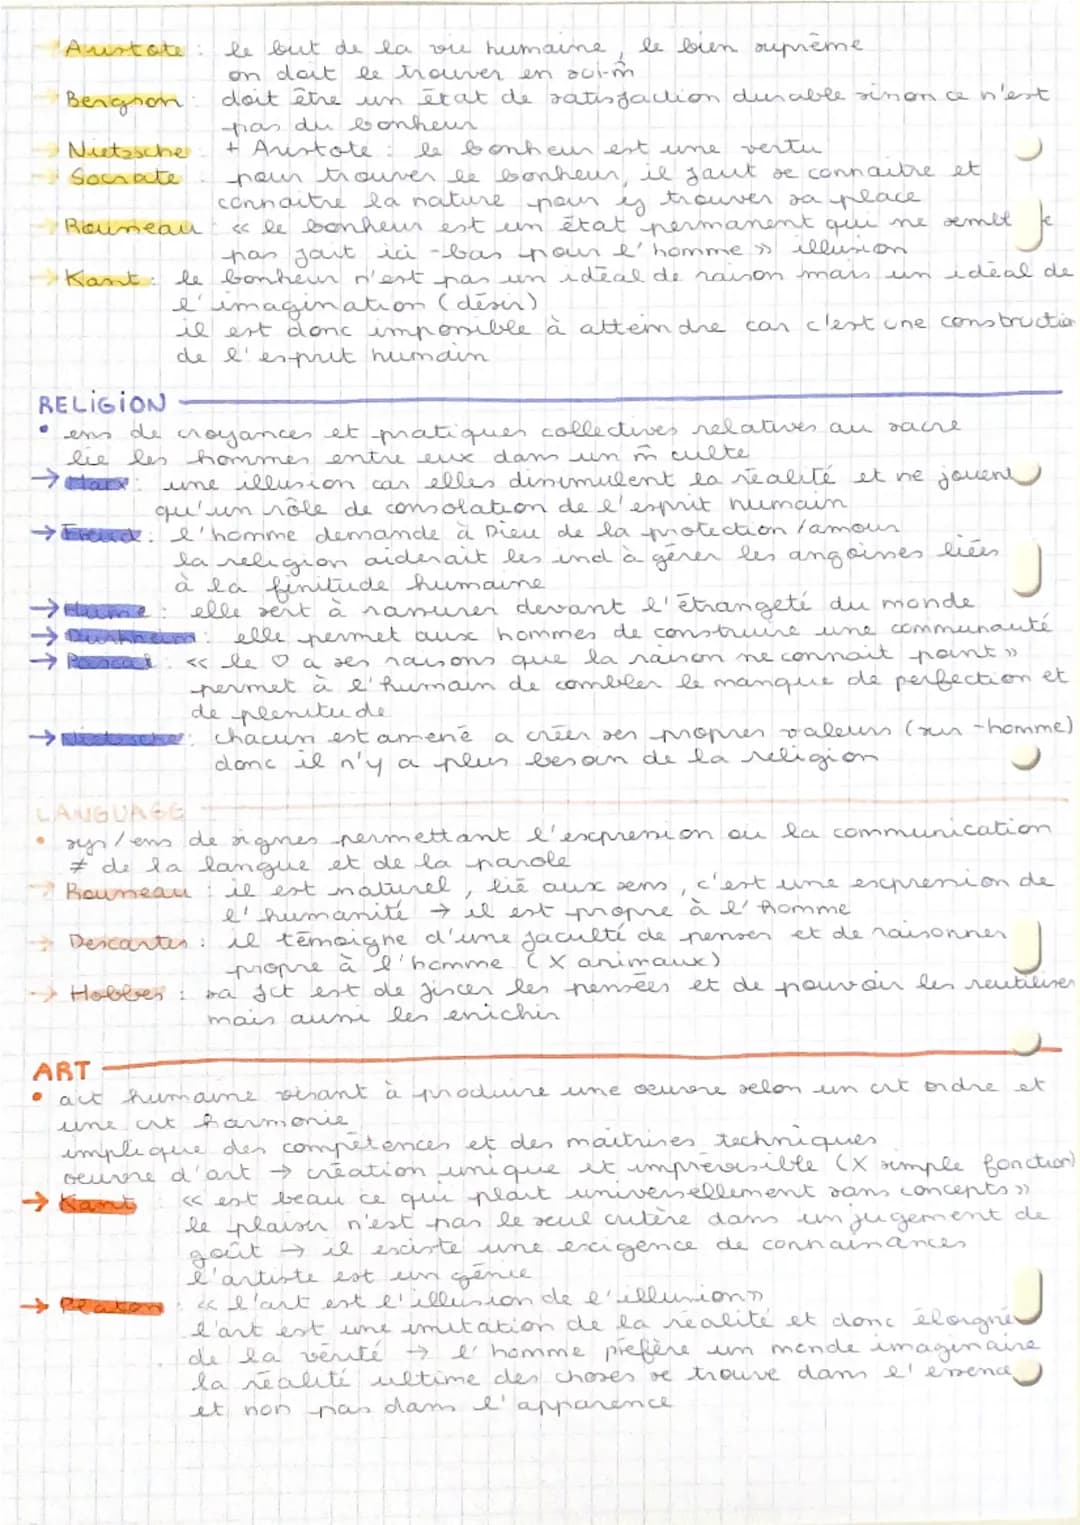 Aristote : le but de la vie humaine, le bien suprême
on doit le trouver en soi-m̂
Bergson : doit être un état de satisfaction durable sinon ce n'est
pas du bonheur
Nietzsche + Aristote : le bonheur est une vertu
Socrate : pour trouver le bonheur, il faut se connaitre et
connaitre la nature pour y trouver sa place
Rousseau : << le bonheur est un état permanent qui ne semble
pas fait ici-bas pour l'homme >> illusion
→ Kant : le bonheur n'est pas un idéal de raison mais un idéal de
l'imagination (désir)
il est donc impossible à atteindre car c'est une constructio
de l'esprit humain
RELIGION
• ens de croyances et pratiques collectives relatives au sacré
lie les hommes entre eux dans un m̂ culte
→ Marx : une illusion car elles dissimulent la réalité et ne jouent
qu'un rôle de consolation de l'esprit humain
→ Freud : l'homme demande à Dieu de la protection/amour
la religion aiderait les ind à gérer les angoisses liées
à la finitude humaine
→ Hume : elle sert à rassurer devant l'étrangeté du monde
→ Durkheim : elle permet aux hommes de construire une communauté
→ Pascal : << le ♡ a ses raisons que la raison ne connait point >>
permet à l'humain de combler le manque de perfection et
de plenitude
→ Nietzsche : chacun est amené a créer ses propres valeurs (sur-homme)
donc il n'y a plus besoin de la religion
LANGUAGE
• sys/ens de signes permettant l'expression ou la communication
≠ de la langue et de la parole
→ Rousseau : il est naturel, lié aux sens, c'est une expression de
l'humanité → il est propre à l'homme
→ Descartes : il témoigne d'une faculté de penser et de raisonner
propre à l'homme (X animaux)
→ Hobbes : sa fct est de fixer les pensées et de pouvoir les réutiliser
mais aussi les enichir
ART
• act humaine visant à produire une oeuvre selon un crt ordre et
une crt harmonie
implique des compétences et des maîtrises techniques
oeuvre d'art → création unique et imprévisible (X simple fonction)
→ Kant : << est beau ce qui plait universellement sans concepts >>
le plaisir n'est pas le seul critère dans un jugement de
goût → il existe une exigence de connaissances
l'artiste est un génie
→ Platon : << l'art est l'illusion de l'illusion >>
l'art est une imitation de la réalité et donc éloigné
de la vérité → l'homme préfère un monde imaginaire
la réalité ultime des choses se trouve dans l'essence
et non pas dans l'apparence